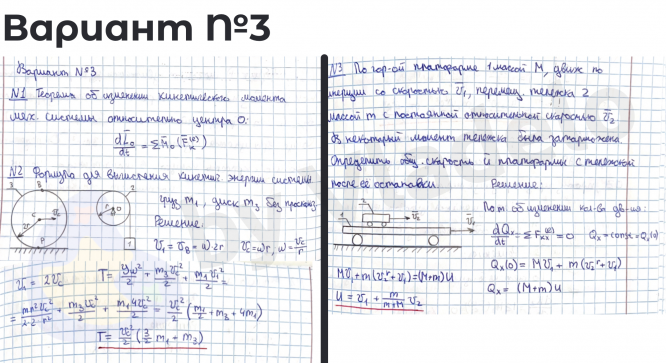 Вариант №3
Вариант №3
N1 Теорема об изменении кинетического момента
мех. системы относительно центра O:
dL̄₀/dt = ΣM̄₀(F̄ₖ⁽ᵉ⁾)
N2 Формула для вычисления кинетич энергии системы
3 B 2
груз m₁, диск m₃ без проскольз.
Решение:
C V̄c r O
2r A 1
V₁ = V_B = ω·2r Vc = ωr, ω = Vc/r
V₁ = 2Vc T = Jω²/2 + m₃Vc²/2 + m₁V₁²/2 =
= Vc²/2 (m₃/2 + m₃ + 4m₁)
T = Vc²/2 (3/2 m₃ + m₁)
N3 По гор-ой платформе 1 массой M, движ по
инерции со скоростью V̄₁, перемещ. тележка 2
массой m с постоянной относительной скоростью V̄₂
В некоторый момент тележка была заторможена.
Определить общ. скорость u платформы с тележкой
после её остановки. Решение:
2 V̄₂ V̄₁
1
По т об изменении кол-ва дв-ия:
dQₓ/dt = ΣFₖₓ⁽ᵉ⁾ = 0 Qₓ = const = Qₓ(0)
Qₓ(0) = MV₁ + m(V₂ʳ + V₁)
MV₁ + m(V₂ʳ + V₁) = (M+m)u
Qₓ = (M+m)u
u = V₁ + m/(m+M) V₂